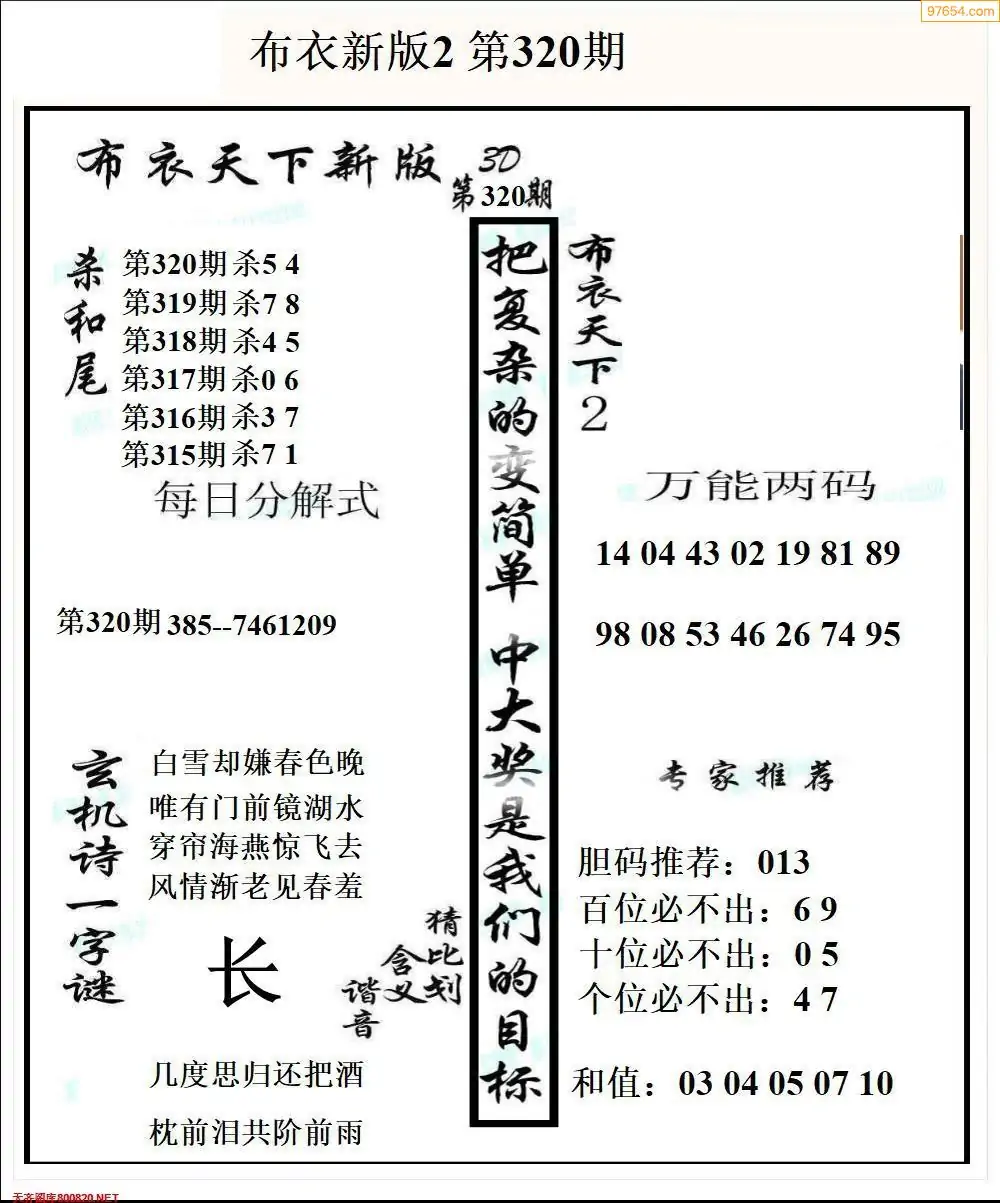 97654.com
布衣新版2 第320期
布衣天下新版
3D
第320期
杀和尾
第320期杀5 4
第319期杀7 8
第318期杀4 5
第317期杀0 6
第316期杀3 7
第315期杀7 1
每日分解式
第320期 385--7461209
玄机诗一字谜
白雪却嫌春色晚
唯有门前镜湖水
穿帘海燕惊飞去
风情渐老见春羞
长
猜比划
含义
谐音
几度思归还把酒
枕前泪共阶前雨
把复杂的变简单 中大奖是我们的目标
布衣天下2
万能两码
14 04 43 02 19 81 89
98 08 53 46 26 74 95
专家推荐
胆码推荐：013
百位必不出：6 9
十位必不出：0 5
个位必不出：4 7
和值：03 04 05 07 10
天齐图库800820.NET